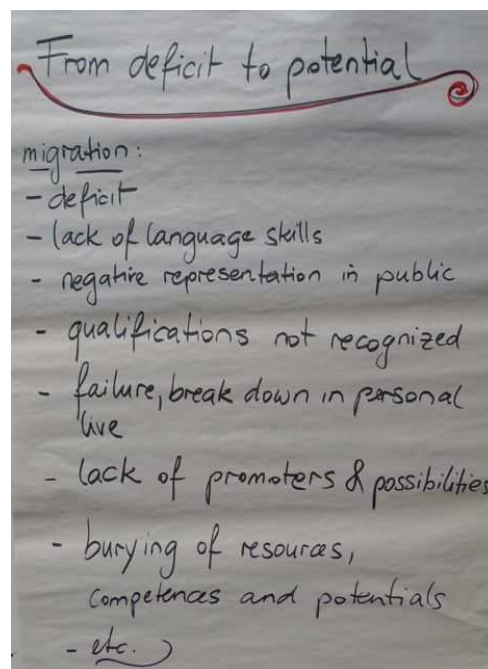 From deficit to potential
migration:
- deficit
- lack of language skills
- negative representation in public
- qualifications not recognized
- failure, break down in personal
live
- lack of promoters & possibilities
- burying of resources,
competences and potentials
- etc.